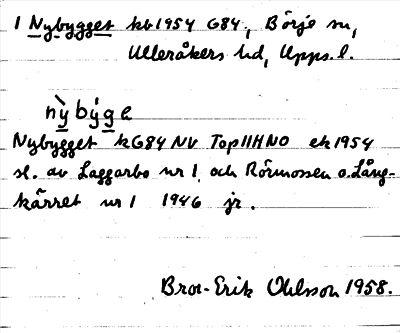 1 Nybygget kb 1954 G84, Börje sn,
Ulleråkers hd, Upps. l.
nỳbýge
Nybygget k G84 NV Top 11H NO ek 1954
sl. av Laggarbo nr 1 och Rörmossen o. Lång-
kärret nr 1 1946 jr.
Bror-Erik Ohlsson 1958.